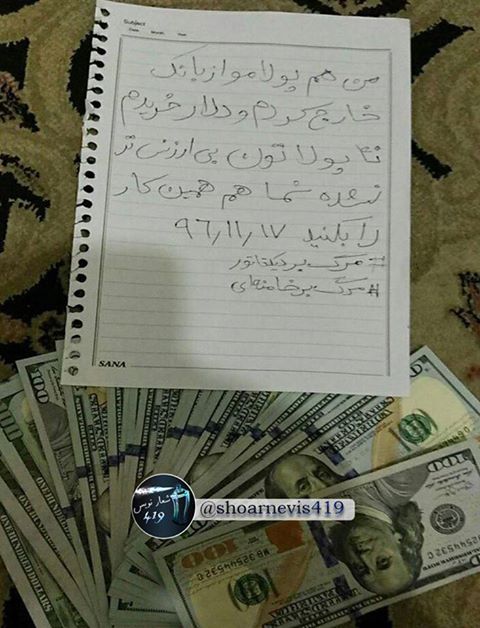 Subject
Date Month Year
من هم پولامو از بانک
خارج کردم و دلار خریدم
تا پولاتون بی ارزش تر
نشده شما هم همین کار
را بکنید ۹۶٫۱۱٫۱۷
#مرگ_بر_دیکتاتور
#مرگ_بر_خامنه‌ای
SANA
شعار نویس
419
@shoarnevis419
100
100
ONE HUNDRED DOLLARS
MB 92544532 C
92544532 C